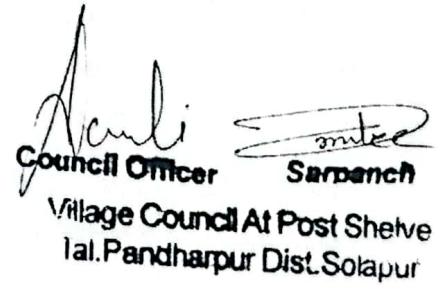 Council Officer Sarpanch
Village Council At Post Shelve
Tal.Pandharpur Dist.Solapur